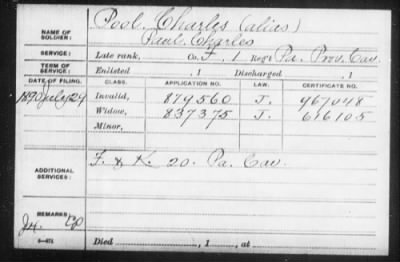 NAME OF SOLDIER: Pool, Charles (alias)
Paul, Charles
SERVICE: Late rank, Co. F, 1 Reg't Pa. Prov. Cav.
TERM OF SERVICE: Enlisted , 1 Discharged , 1
DATE OF FILING. CLASS. APPLICATION NO. LAW. CERTIFICATE NO.
1890 July 29 Invalid, 879560 J. 967048
Widow, 837375 J. 616105
Minor,
ADDITIONAL SERVICES: F. & K. 20. Pa. Cav.
REMARKS:
Died , 1 , at